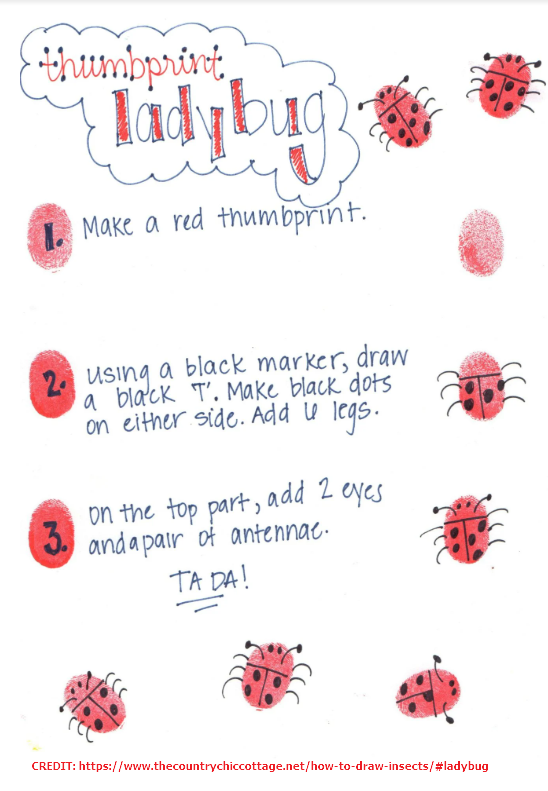 thumbprint
ladybug
1. Make a red thumbprint.
2. Using a black marker, draw
a black 'T'. Make black dots
on either side. Add 6 legs.
3. On the top part, add 2 eyes
and a pair of antennae.
TA DA!
CREDIT: https://www.thecountrychiccottage.net/how-to-draw-insects/#ladybug